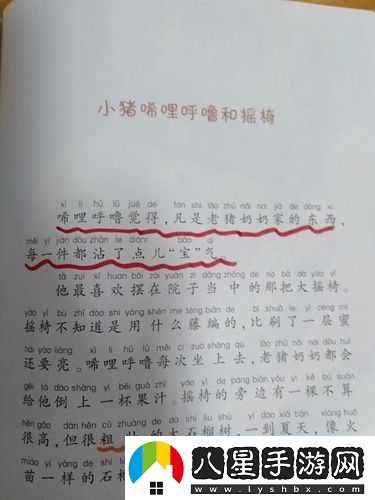 小猪唏哩呼噜和摇椅
xī lī hū lū jué de fán shì lǎo zhū nǎi nai jiā de dōng xi
唏哩呼噜觉得，凡是老猪奶奶家的东西，
měi yí jiàn dōu zhān le diǎnr bǎo qì
每一件都沾了点儿“宝”气。
tā zuì xǐ huan bǎi zài yuàn zi dāng zhōng de nà bǎ dà yáo yǐ
他最喜欢摆在院子当中的那把大摇椅。
yáo yǐ bù zhī dào shì yòng shén me téng biān de bǐ shuā le yì céng mì
摇椅不知道是用什么藤编的，比刷了一层蜜
hái yào liàng xī lī hū lū měi cì zuò shàng qù lǎo zhū nǎi nai dōu huì
还要亮。唏哩呼噜每次坐上去，老猪奶奶都会
gěi tā dào shàng yì bēi guǒ zhī yáo yǐ de páng biān yǒu yì kē bú suàn
给他倒上一杯果汁。摇椅的旁边有一棵不算
hěn gāo dàn hěn cū zhuàng de dà shí liu shù yí dào xià tiān xiàng huǒ
很高，但很粗壮的大石榴树，一到夏天，像火
miáo yí yàng de shí liu
苗一样的石榴
八星手游网
www.lyshbx.com